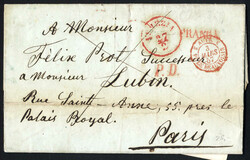 A Monsieur
Félix Prot Successeur
à Monsieur Lubin.
Rue Saint-Anne, 55 près le
Palais Royal.
Paris
FRANCO
P.D.